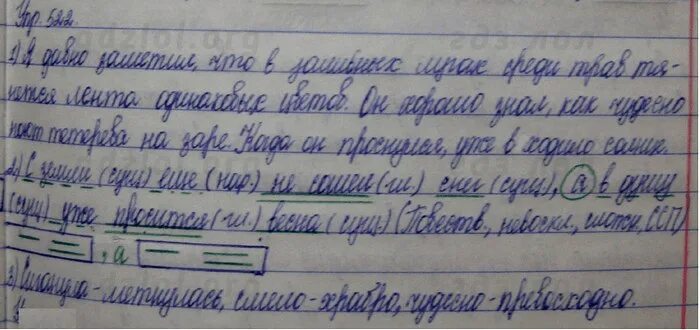 Упр. 522.
1) Я давно заметил, что в заливных лугах среди трав тя-
нется лента одинаковых цветов. Он хорошо знал, как чудесно
поют тетерева на заре. Когда он проснулся, уже в ходило солнце.
2) С земли (сущ.) еще (нар.) не сошел (гл.) снег (сущ.), а в душу
(сущ.) уже просится (гл.) весна (сущ.) (Повеств., невоскл., сложн., ССП)
, а
3) метнулась, смело-храбро, чудесно-превосходно.